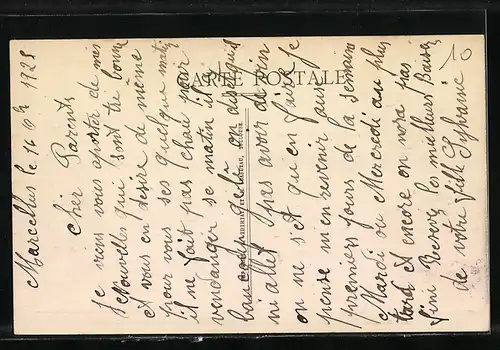 Marcellus le 16 8bre 1928
Cher Parents
Je viens vous aporter de mes
Nouvelles qui sont tre bonne
et vous en desire de meme
pour vous ses quelque mots
il ne fait pas chau pour
vendanger se matin il a
beaucoup gelé on dist quil
ni allet pas avoir de vin
on ne s et que en faire Je
pense m en revenir aus
premiers jours de la semaine
Mardi ou Mercredi au plus
tard et encore on nora pas
fini Recevez les meilleurs Baisers
de votre fille
CARTE POSTALE
10